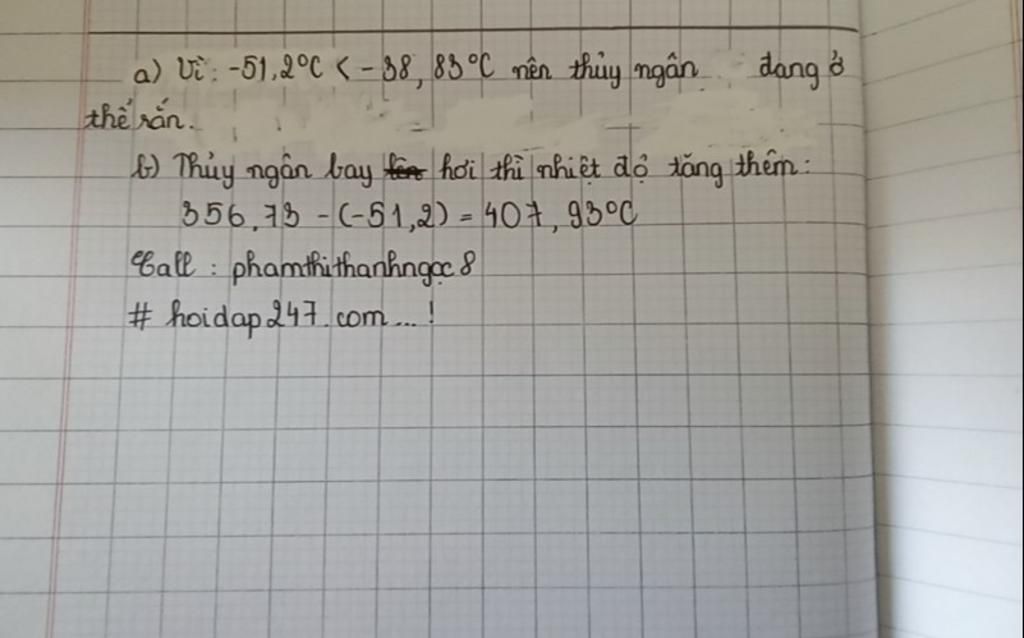 a) Vì: -51,2°C < -38,83°C nên thủy ngân đang ở
thể rắn.
b) Thủy ngân bay hơi thì nhiệt độ tăng thêm:
356,73 - (-51,2) = 407,93°C
Call : phamthithanhngọc8
# hoidap247.com...!